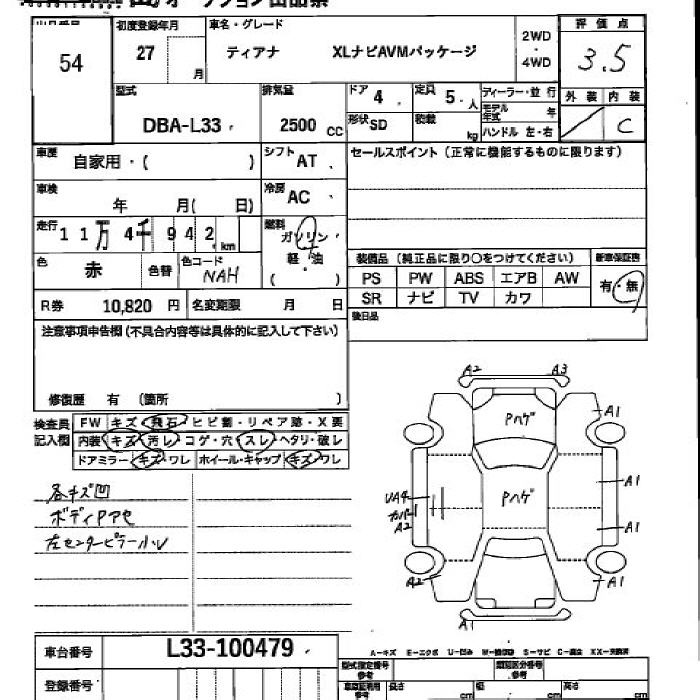 初度登録年月 車名・グレード 2WD・4WD 評価点
54 27 月 ティアナ XLナビAVMパッケージ 3.5
型式 DBA-L33 排気量 2500 CC ドア 4 定員 5 人 ディーラー・並行 外装 内装
形状 SD 積載 kg モデル年式 年 ハンドル 左・右 C
車歴 自家用・( ) シフト AT セールスポイント(正常に機能するものに限ります)
車検 年 月( 日) 冷房 AC
走行 11万4千942 km 燃料 ガソリン・軽・油 ( )
色 赤 色替 色コード NAH 装備品(純正品に限り○をつけてください) 新車保証書
PS PW ABS エアB AW 有・無
SR ナビ TV カワ
R券 10,820 円 名変期限 月 日 後日品
注意事項申告欄(不具合内容等は具体的に記入して下さい)
修復歴 有 (箇所 )
検査員記入欄 FW キズ・飛石・ヒビ割・リペア跡・X要
内装 キズ・汚レ・コゲ・穴・スレ・ヘタリ・破レ
ドアミラー キズ・ワレ ホイール・キャップ キズ・ワレ
各キズ凹
ボディPアセ
左センターピラー小U
A2 A3
Pハゲ A1
Pハゲ A1
UA4
カバー1
A2 A1
A2 A1
A1
車台番号 L33-100479
A-キズ E-エクボ U-凹み S-サビ C-腐食
登録番号 型式指定番号 参考 類別区分番号 参考
長さ cm 幅 cm 高さ cm